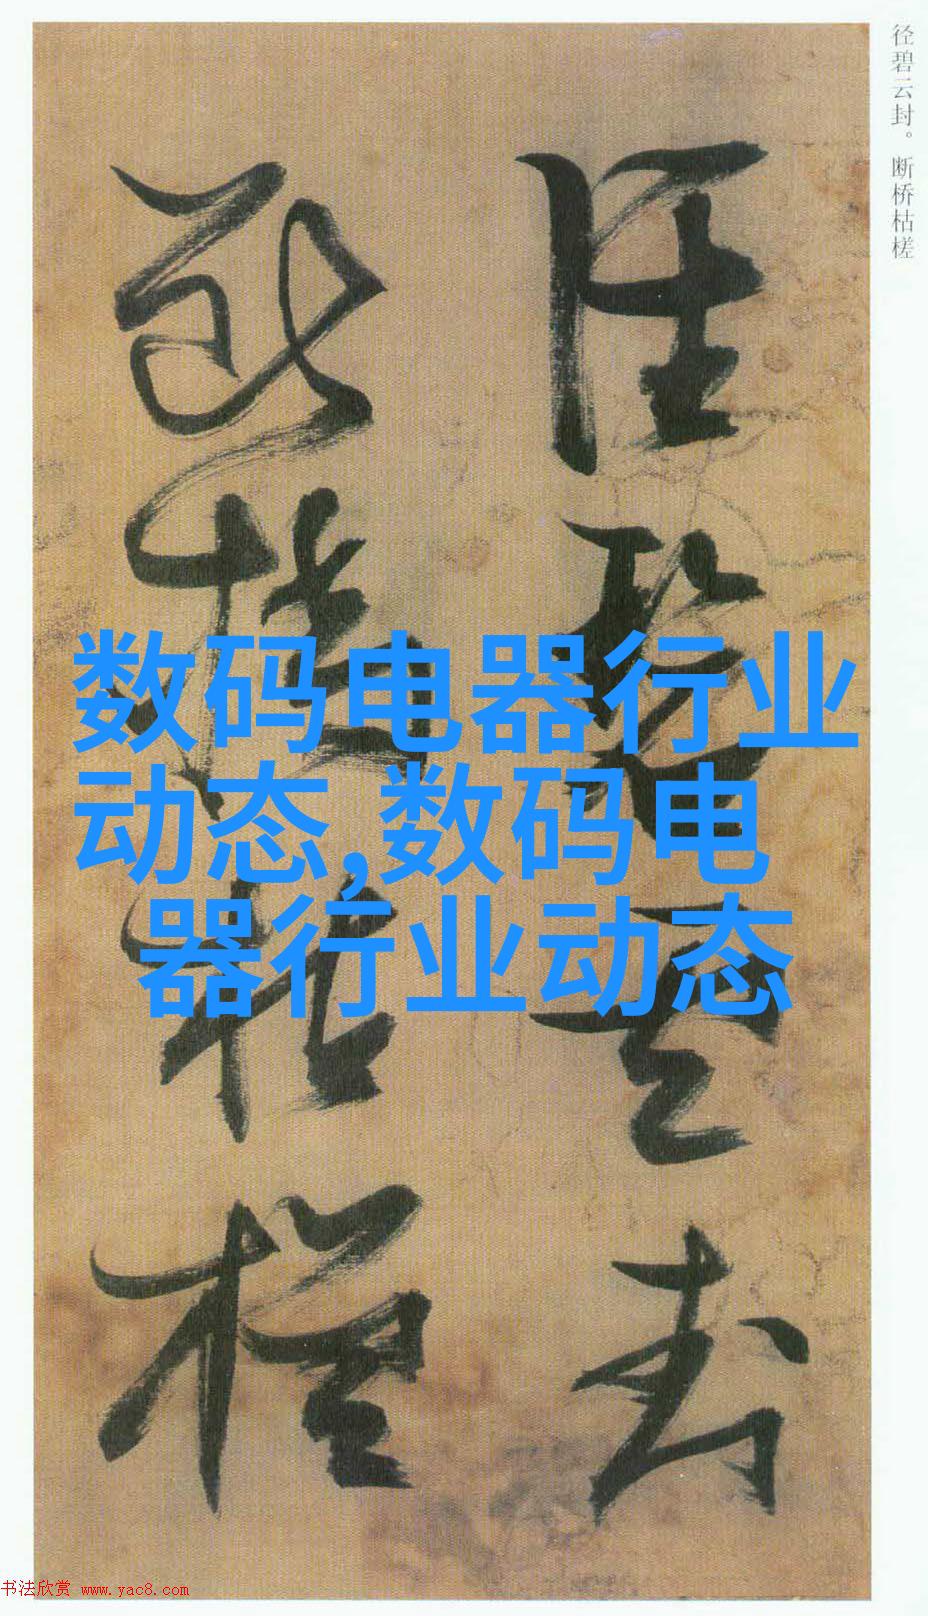 径碧云封。断桥枯槎
径碧云封
断桥枯槎
数码电器行业
动态,数码电
器行业动态
书法欣赏 www.yac8.com